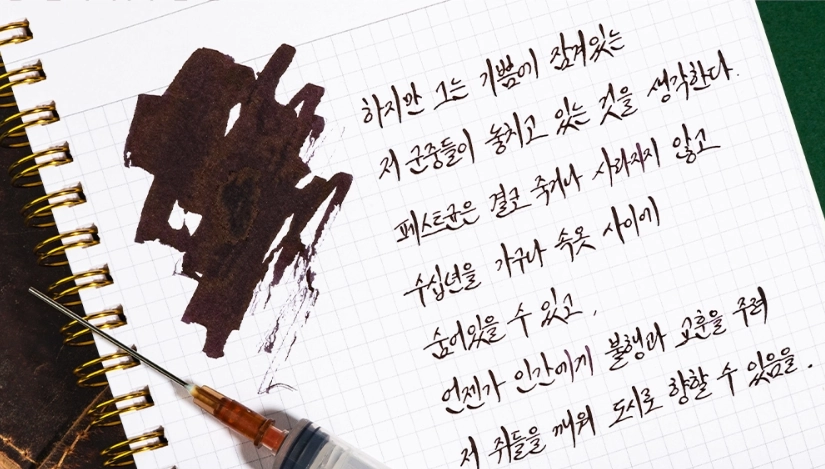 하지만 그는 기쁨에 잠겨있는
저 군중들이 놓치고 있는 것을 생각한다.
페스트균은 결코 죽거나 사라지지 않고
수십년을 가구나 속옷 사이에
숨어있을 수 있고,
언젠가 인간에게 불행과 교훈을 주려
저 쥐들을 깨워 도시로 향할 수 있음을.